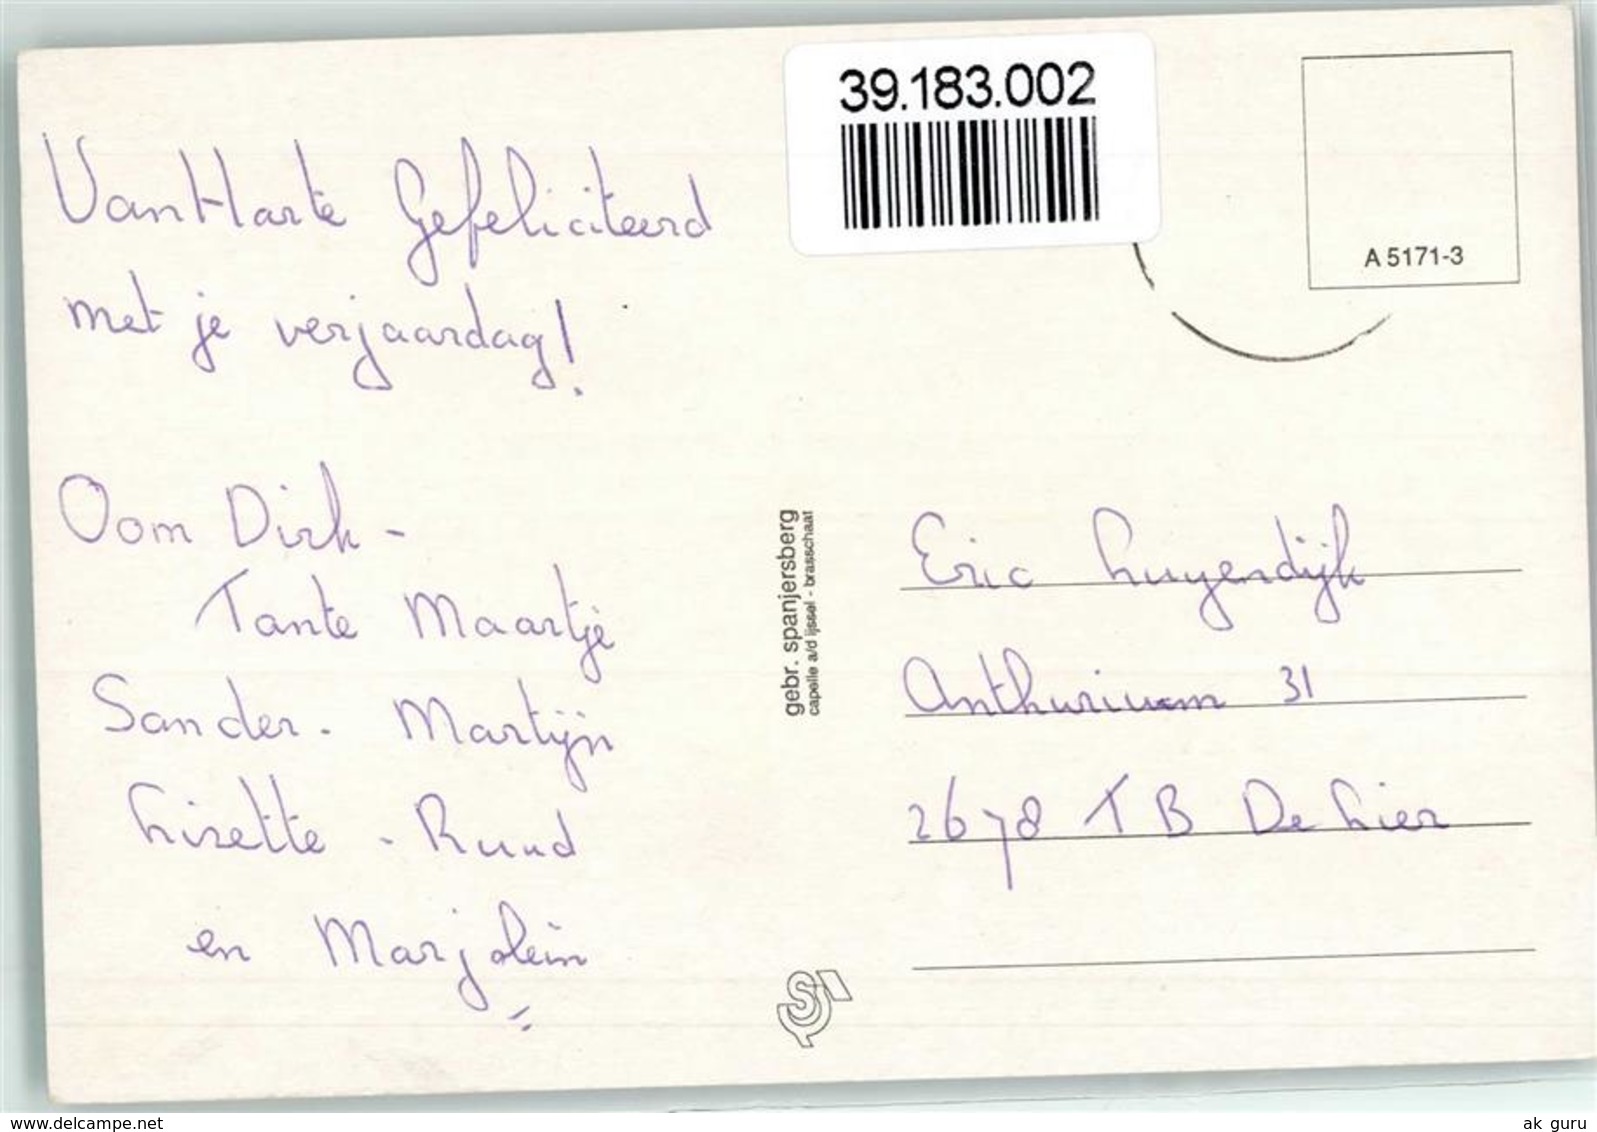 39.183.002
A 5171-3
Van Harte Gefeliciteerd
met je verjaardag!
Oom Dirk -
Tante Maartje
Sander - Martijn
Lisette - Ruud
en Marjolein
gebr. spanjersberg
capelle a/d ijssel - brasschaat
Eric Luyendijk
Anthurium 31
2678 TB De Lier
www.delcampe.net
ak_guru